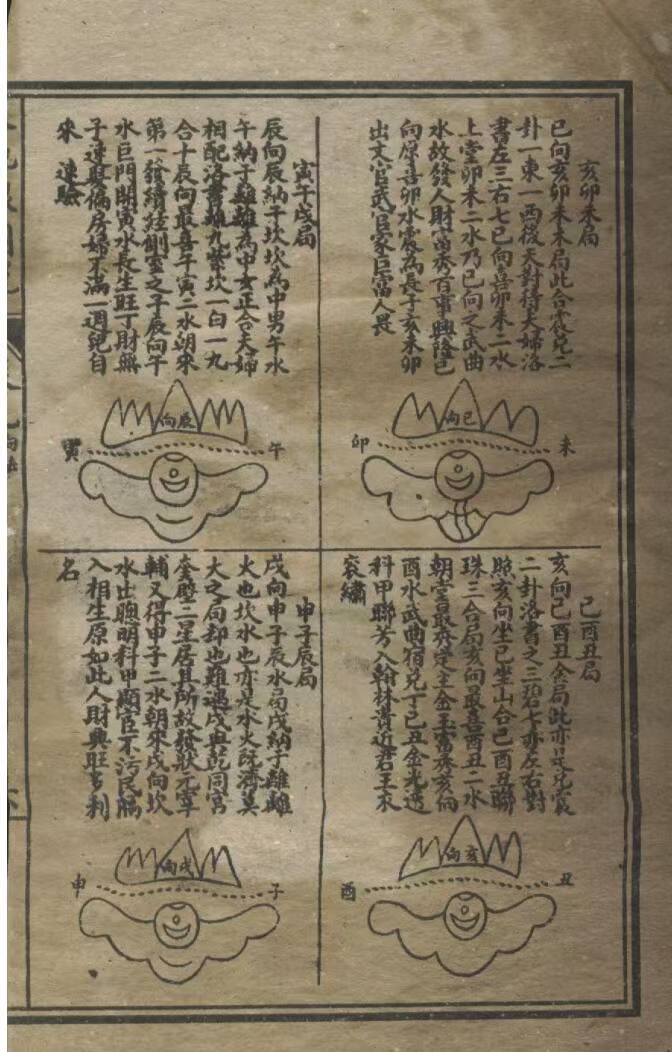 亥卯未局
巳向亥卯未木局此合震兌二
卦一東一西後天對待夫婦洛
書左三右七巳向喜卯未二水
上堂卯未二水乃巳向之武曲
水故發人財富秀百事興隆巳
向原喜卯水震為長子亥未卯
出文官武官家巨富人畏
向巳
卯
未
寅午戌局
辰向辰納子坎坎為中男午水
午納子離離為中女正合夫婦
相配洛書離九紫坎一白一九
合十辰向最喜午寅二水朝來
第一發續絃側室之子辰向午
水巨門開寅水長生旺丁財無
子運娶偏房婦不滿一週兒自
來 速驗
向辰
寅
午
巳酉丑局
亥向巳酉丑金局此亦是兌震
二卦洛書之三碧七赤左右對
照亥向坐巳坐山合巳酉丑聯
珠三合局亥向最喜酉丑二水
朝堂最秀定主金玉富秀亥向
酉水武曲宿兌丁巳丑金光透
科甲聯芳入翰林貴近君王衣
袞繡
向亥
酉
丑
申子辰局
戌向申子辰水局戌納子離離
火也坎水也亦是水火既濟莫
大之局却也難遇戌與乾同宮
奎璧二星居其所故發狀元宰
輔又得申子二水朝來戌向坎
水出聰明科甲顯官不污民膈
入相生原如此人財興旺多利
名
向戌
申
子